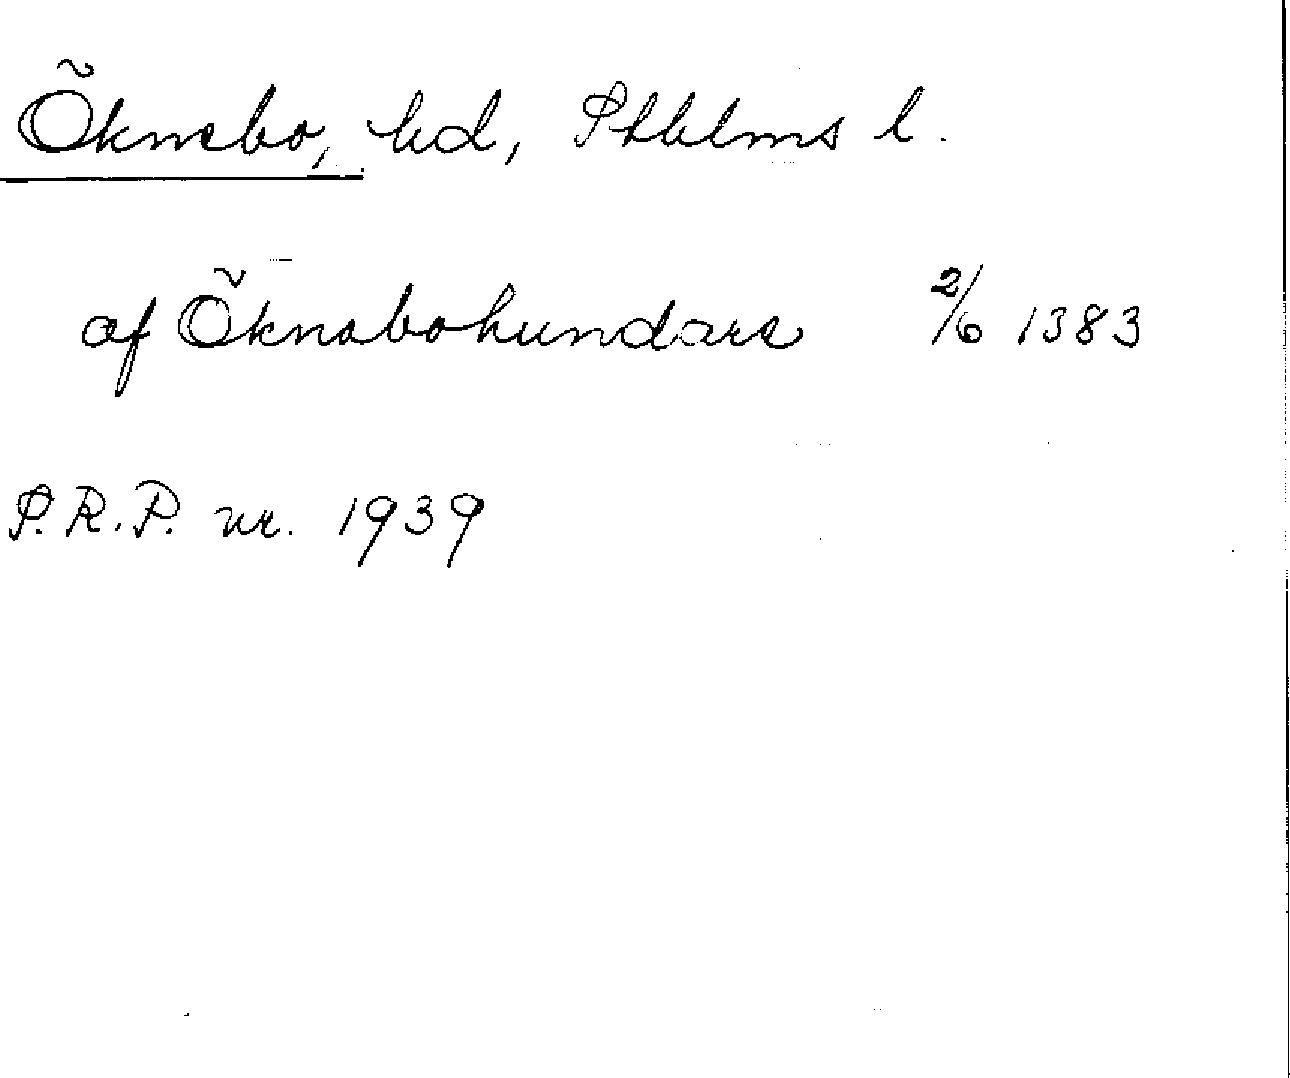 Öknebo, hd, Sthlms l.
af Öknabohundare 2/6 1383
S.R.P. nr. 1939